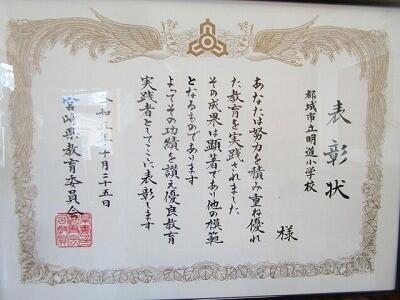 表彰状
都城市立明道小学校
様
あなたは努力を積み重ね優れ
た教育を実践されました
その成果は顕著であり他の模範
となるものであります
よってその功績を讃え優良教育
実践者としてここに表彰します
令和 年十月二十五日
宮崎県教育委員会